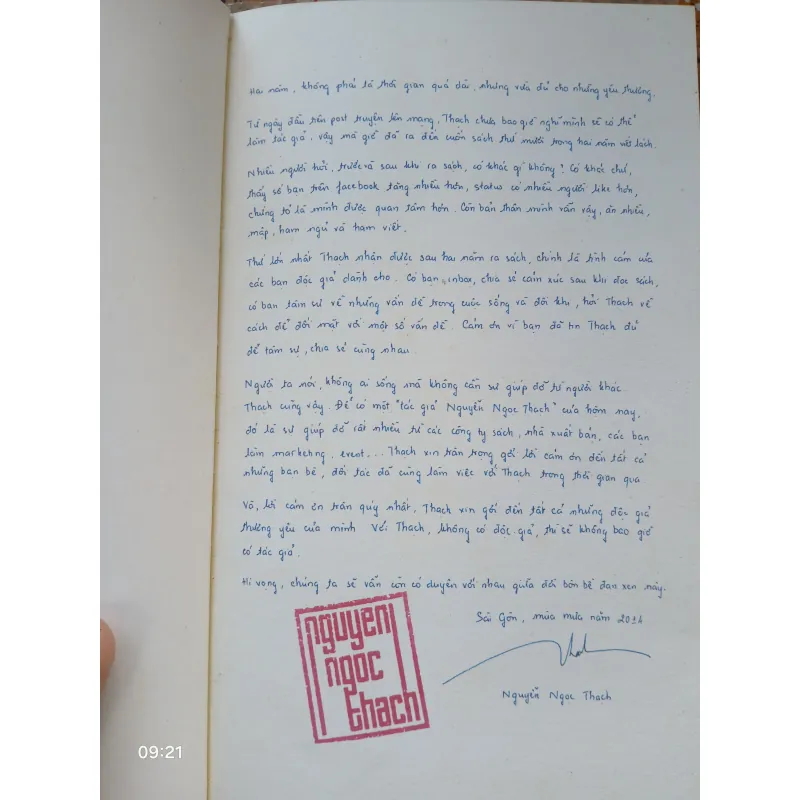 Hai năm, không phải là thời gian quá dài, nhưng vừa đủ cho những yêu thương.
Từ ngày đầu tiên post truyện lên mạng, Thạch chưa bao giờ nghĩ mình sẽ có thể
làm tác giả, vậy mà giờ đã ra đến cuốn sách thứ mười trong hai năm viết lách.
Nhiều người hỏi, trước và sau khi ra sách, có khác gì không? Có khác chứ,
thấy số bạn trên facebook tăng nhiều hơn, status có nhiều người like hơn,
chứng tỏ là mình được quan tâm hơn. Còn bản thân mình vẫn vậy, ăn nhiều,
mập, ham ngủ và ham viết.
Thứ lớn nhất Thạch nhận được sau hai năm ra sách, chính là tình cảm của
các bạn độc giả dành cho. Có bạn inbox, chia sẻ cảm xúc sau khi đọc sách,
có bạn tâm sự về những vấn đề trong cuộc sống và đôi khi, hỏi Thạch về
cách để đối mặt với một số vấn đề. Cảm ơn vì bạn đã tin Thạch đủ
để tâm sự, chia sẻ cùng nhau.
Người ta nói, không ai sống mà không cần sự giúp đỡ từ người khác.
Thạch cũng vậy. Để có một "tác giả Nguyễn Ngọc Thạch" của hôm nay,
đó là sự giúp đỡ rất nhiều từ các công ty sách, nhà xuất bản, các bạn
làm marketing, event... Thạch xin trân trọng gởi lời cảm ơn đến tất cả
những bạn bè, đối tác đã cùng làm việc với Thạch trong thời gian qua
Và, lời cảm ơn trân quý nhất, Thạch xin gởi đến tất cả những độc giả
thương yêu của mình. Với Thạch, không có độc giả, thì sẽ không bao giờ
có tác giả.
Hi vọng, chúng ta sẽ vẫn còn có duyên với nhau giữa đời bộn bề đan xen này.
Sài Gòn, mùa mưa năm 2014
Nguyễn Ngọc Thạch
nguyen
ngoc
thach
09:21